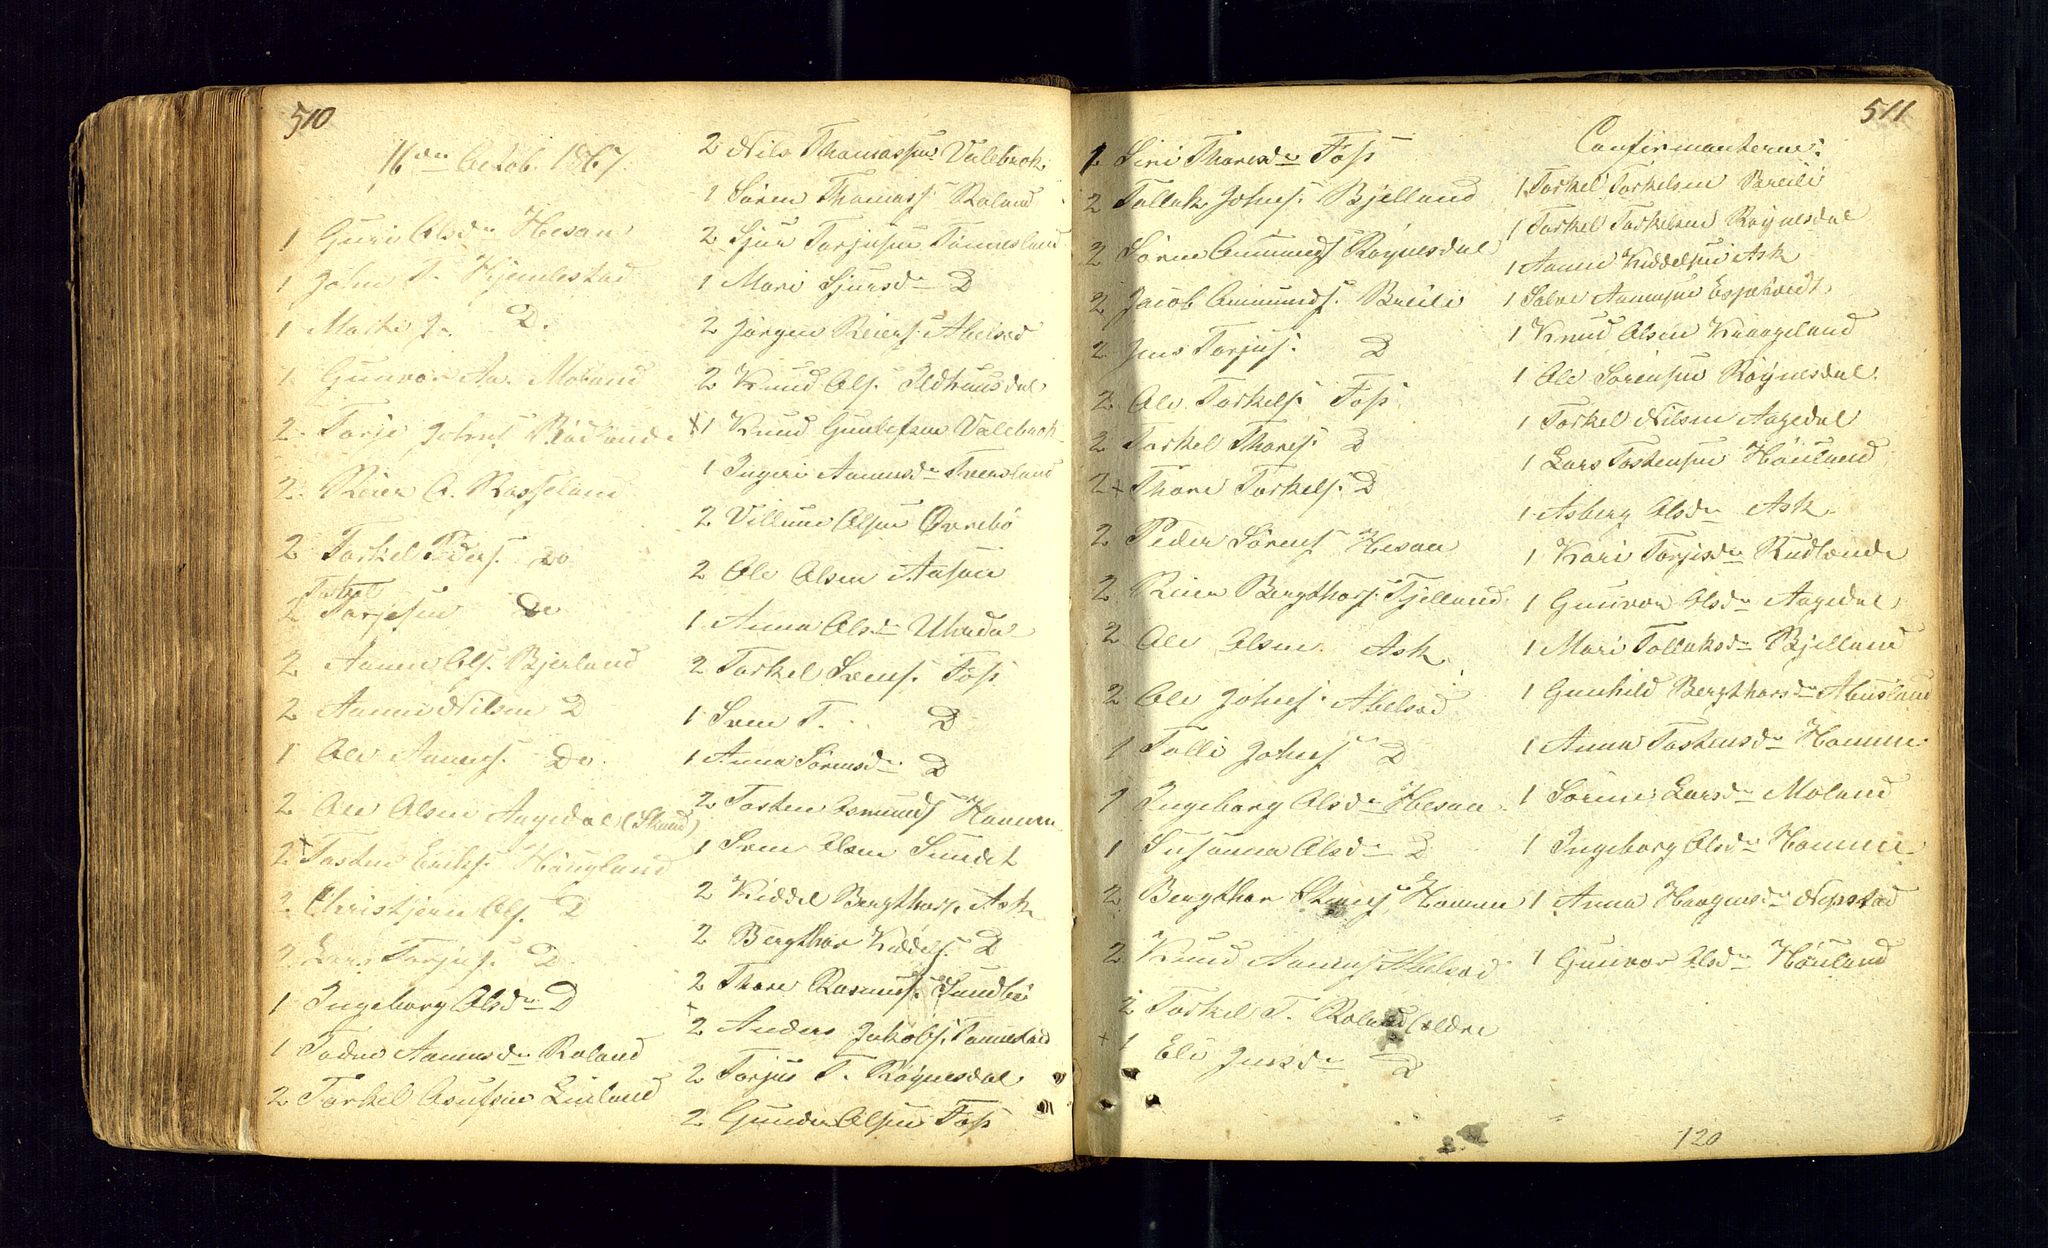 510
16den Octob. 1867.
1 Guri Olsdr Hesaa
1 John T. Hjemlestad
1 Marthe J. D.
1 Gunvor Aa. Moland
2 Torje Johns
2 Reier O. Rosseland
2 Torkel Peders. do
Torkel
2 Torjesen Do
2 Aanen Ols. Bjerland
2 Aanen Nilsen D
1 Ole Aanens. Do.
2 Ole Olsen Aagedal (Skand)
2 + Tosten Eriks. Höugland
2 Christjern Ols. D
2 Lars Torjus. D.
1 Ingeborg Olsdr D
1 Todne Aanensdr Roland
2 Torkel Osufsen Lieland
2 Nils Thomassen Valebrok
1 Sören Thomass. Roland
2 Sjur Torjusen Tönnesland
1 Mari Sjursdr D
2 Jörgen Reiers. Abelsed
2 Knud Ols. Ildhuusdal
+1 Knud Gunlefsen Valebrok
1 Ingeri Aanensdr Tveesland
2 Villum Olsen Övrebö
2 Ole Olsen Aasen
1 Anna Olsdr Uhrdal
2 Torkel Svens. Foss
1 Sven T. D
1 Anna Sörensdr D
2 Tosten Osmunds Homme
1 Sven Olsen Sundet
2 Kiddel Bergthors. Ask
2 Bergthor Kiddels. D
2 Thore Rasmus. Sundbö
+
2 Anders Jakobs. Tonnestad
2 Torjus T. Röynesdal
2 Gunder Olsen Foss
511
1 Siri Thoresdr Foss
2 Tollak Johns. Bjelland
2 Sören Omunds Röynesdal
2 Jacob Omunds. Breili
2 Jens Torjus. D
2 Ole Torkels. Foss
2 Torkel Thores. D
2 + Thore Torkels. D
2 Peder Sörens Hesaa
2 Reier Bergthors. Tjelland
2 Ole Olsen Ask
2 Ole Johns. Abelsed
1 Tolli Johns D
1 Ingeborg Olsdr Hesaa
1 Susanna Olsdr D
2 Bergthor Homme
2 Knud Aanens Abelsed
2 Torkel T. Roland ældre
+ 1 Eli Jensdr D
Confirmanterne:
1 Torkel Torkelsen Breili
1 Torkel Torkelsen Röynesdal
1 Aanen Kiddelsen Ask
1 Salve Aanensen Espetvedt
1 Knud Olsen Kraageland
1 Ole Sörensen Röynesdal
1 Torkel Nilsen Aagedal
1 Lars Tostensen Höuland
1 Asberg Olsdr Ask
1 Kari Torjusdr Rudlænde
1 Gunvor Olsdr Aagedal
1 Mari Tollaksdr Bjelland
1 Gunhild Bergthorsdr Abusland
1 Anna Tostensdr Homme
1 Sörine Larsdr Moland
1 Ingeborg Olsdr Homme
1 Anna Haagensdr Nepstad
1 Gunvor Olsdr Höuland
120